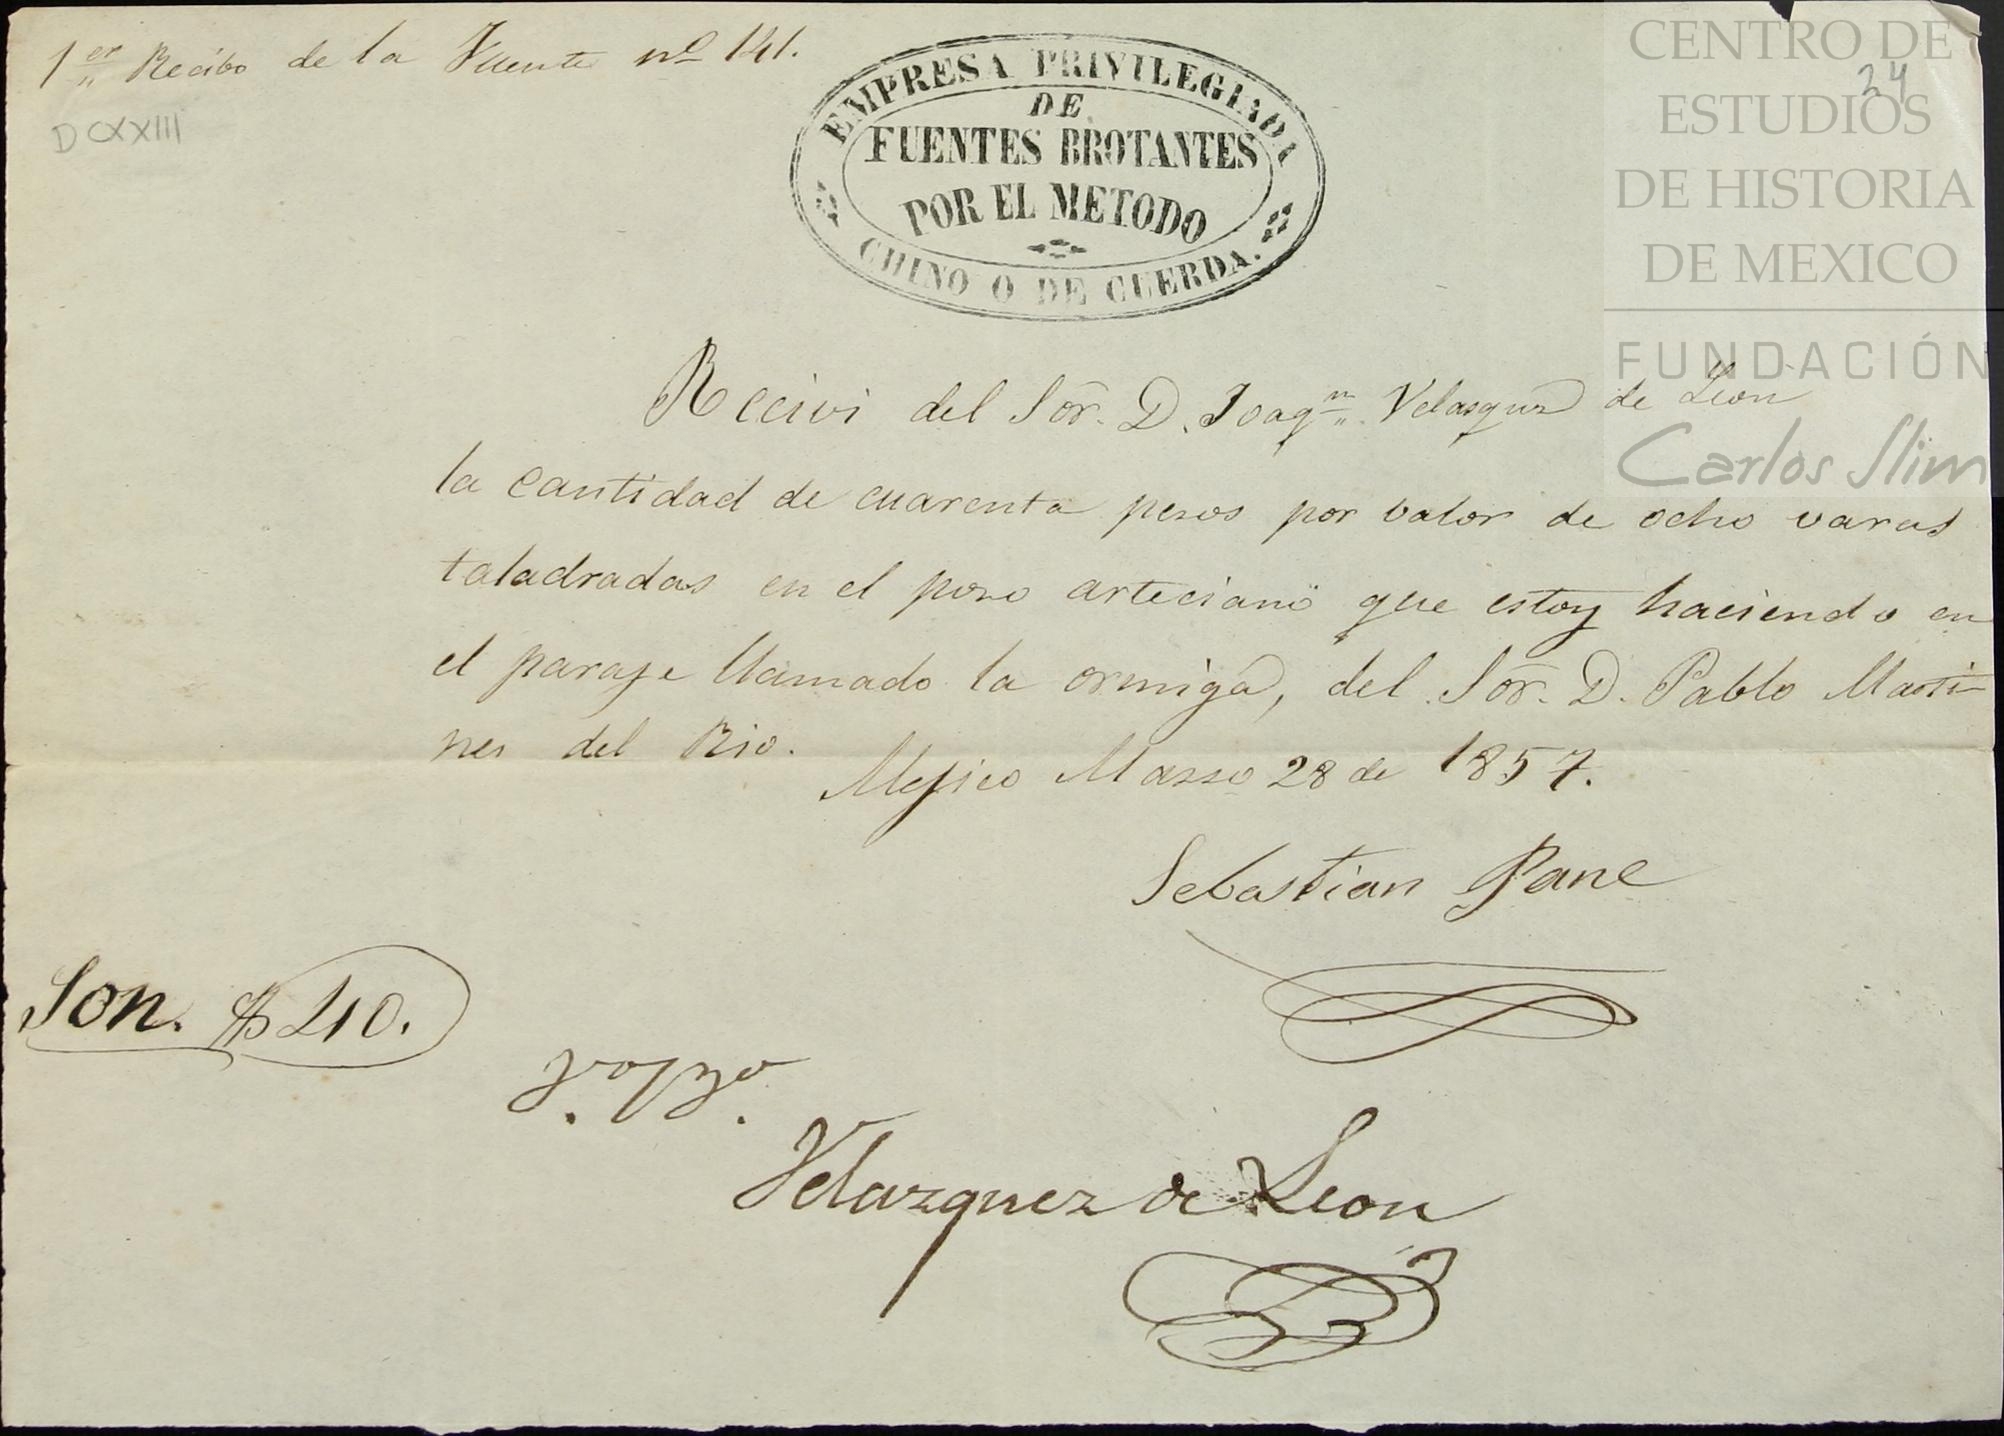 1er Recibo de la Fuente no 141.
D CXXIII
EMPRESA PRIVILEGIADA
DE
FUENTES BROTANTES
POR EL METODO
CHINO O DE CUERDA.
CENTRO DE
24
ESTUDIOS
DE HISTORIA
DE MEXICO
FUNDACIÓN
Carlos Slim
Recivi del Sor. D. Joaqn. Velasquez de Leon
la cantidad de cuarenta pesos por valor de ocho varas
taladradas en el poso arteciano que estoy haciendo en
el paraje llamado la ormiga, del Sor. D. Pablo Marti-
nes del Rio.
Mejico Marzo 28 de 1857.
Sebastian Pane
Son. $ 40.
Velazquez de Leon